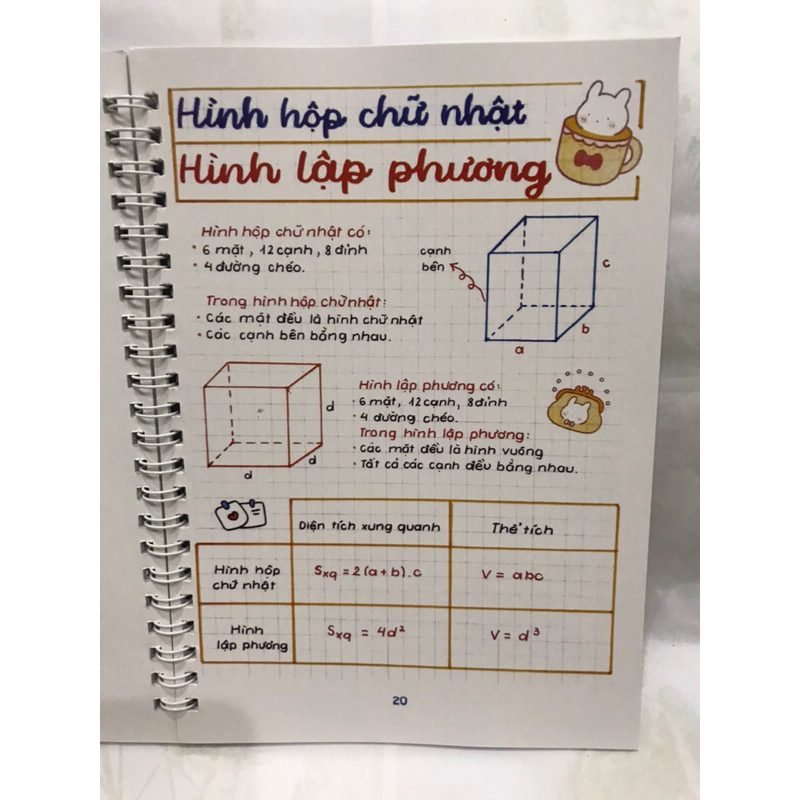 Hình hộp chữ nhật
Hình lập phương
Hình hộp chữ nhật có:
• 6 mặt, 12 cạnh, 8 đỉnh
• 4 đường chéo.
Trong hình hộp chữ nhật:
• Các mặt đều là hình chữ nhật
• Các cạnh bên bằng nhau.
cạnh
bên
c
b
a
d
d
d
Hình lập phương có:
• 6 mặt, 12 cạnh, 8 đỉnh
• 4 đường chéo.
Trong hình lập phương:
• Các mặt đều là hình vuông
• Tất cả các cạnh đều bằng nhau.
Diện tích xung quanh
Thể tích
Hình hộp
chữ nhật
Sxq = 2(a+b).c
V = abc
Hình
lập phương
Sxq = 4d²
V = d³
20